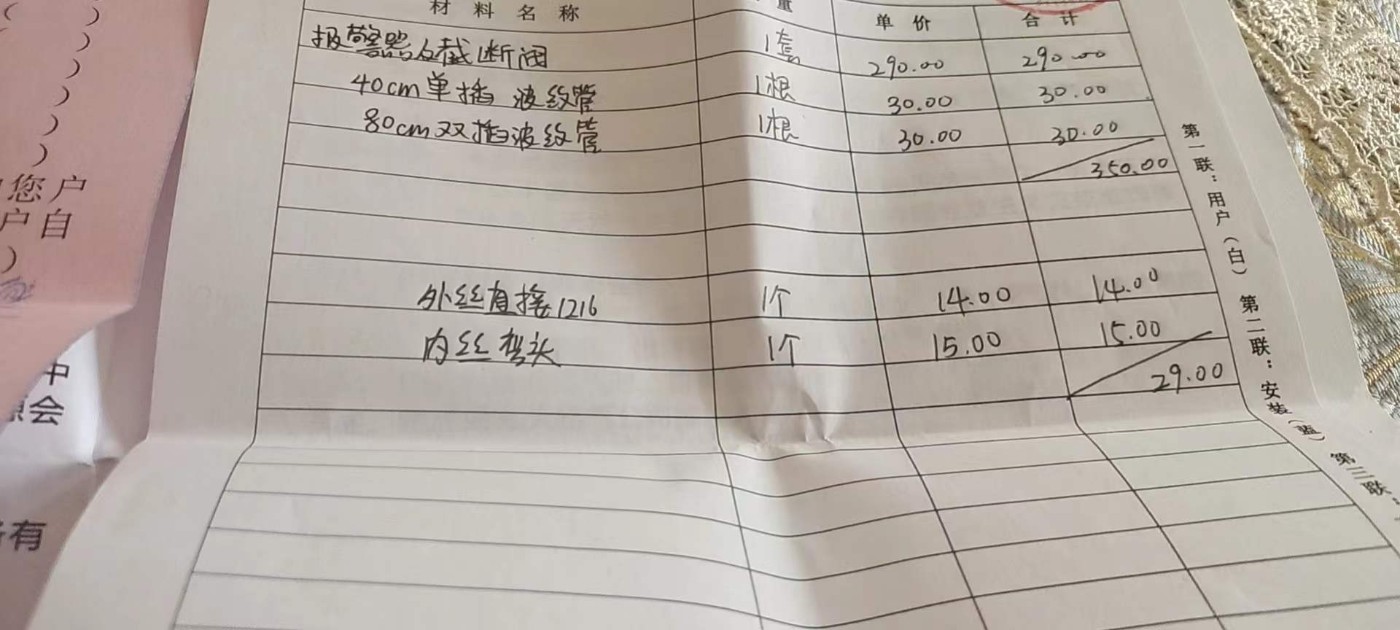 材料名称 量 单价 合计
报警器及截断阀 1套 290.00 290.00
40cm单插波纹管 1根 30.00 30.00
80cm双插波纹管 1根 30.00 30.00
350.00
外丝直接1216 1个 14.00 14.00
内丝弯头 1个 15.00 15.00
29.00
第一联：用户（白） 第二联：安装（蓝） 第三联：
您户
户自
）
中
会
有